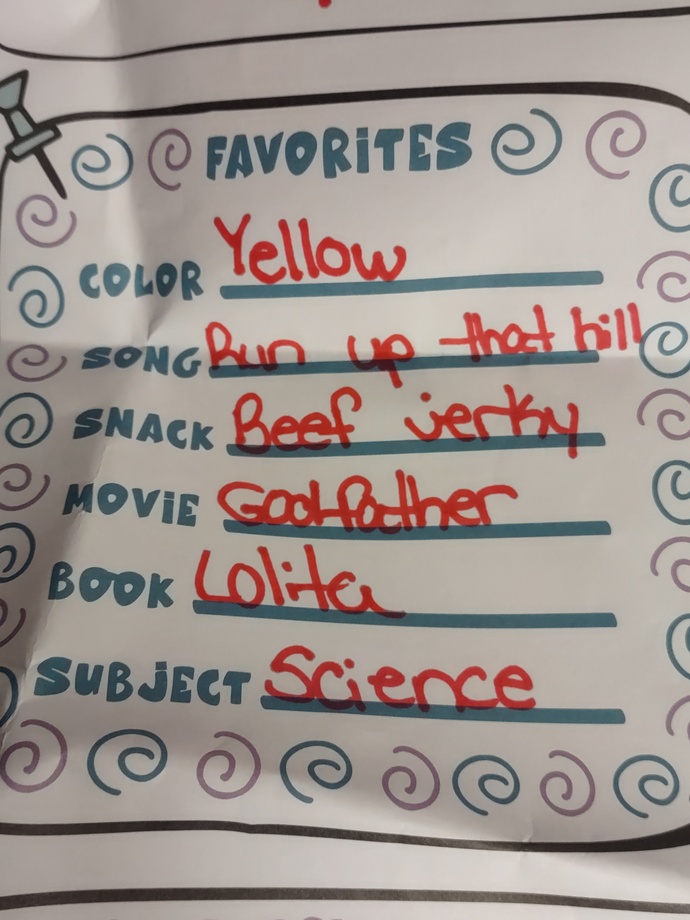 FAVORITES
COLOR Yellow
SONG Run up that hill
SNACK Beef jerky
MOVIE Godfather
BOOK Lolita
SUBJECT Science